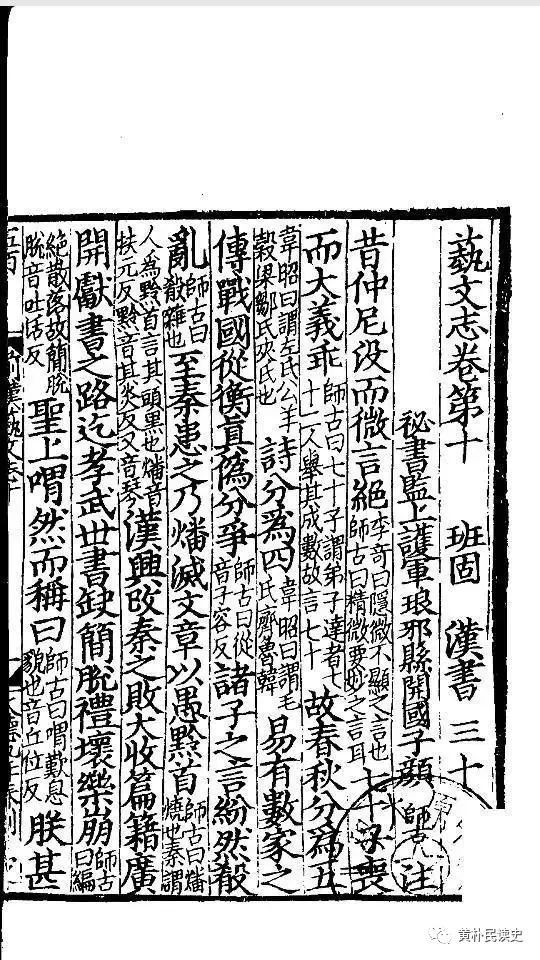 藝文志卷第十 班固 漢書 三十
祕書監上護軍琅邪縣開國子顏 師古 注
昔仲尼沒而微言絕李奇曰隱微不顯之言也師古曰精微要妙之言耳七十子喪
而大義乖師古曰七十子謂弟子達者七十二人舉其成數故言七十故春秋分爲五
韋昭曰謂左氏公羊穀梁鄒氏夾氏也詩分爲四韋昭曰謂毛氏齊魯韓易有數家之
傳戰國從衡真偽分爭師古曰從音子容反諸子之言紛然殽
亂師古曰殽雜也至秦患之乃燔滅文章以愚黔首師古曰燔燒也秦謂
人爲黔首言其頭黑也燔音扶元反黔音其炎反又音琴漢興改秦之敗大收篇籍廣
開獻書之路迄孝武世書缺簡脫禮壞樂崩師古曰編
絕散落故簡脫脫音吐活反聖上喟然而稱曰師古曰喟歎息貌也音丘位反朕甚
黄朴民读史